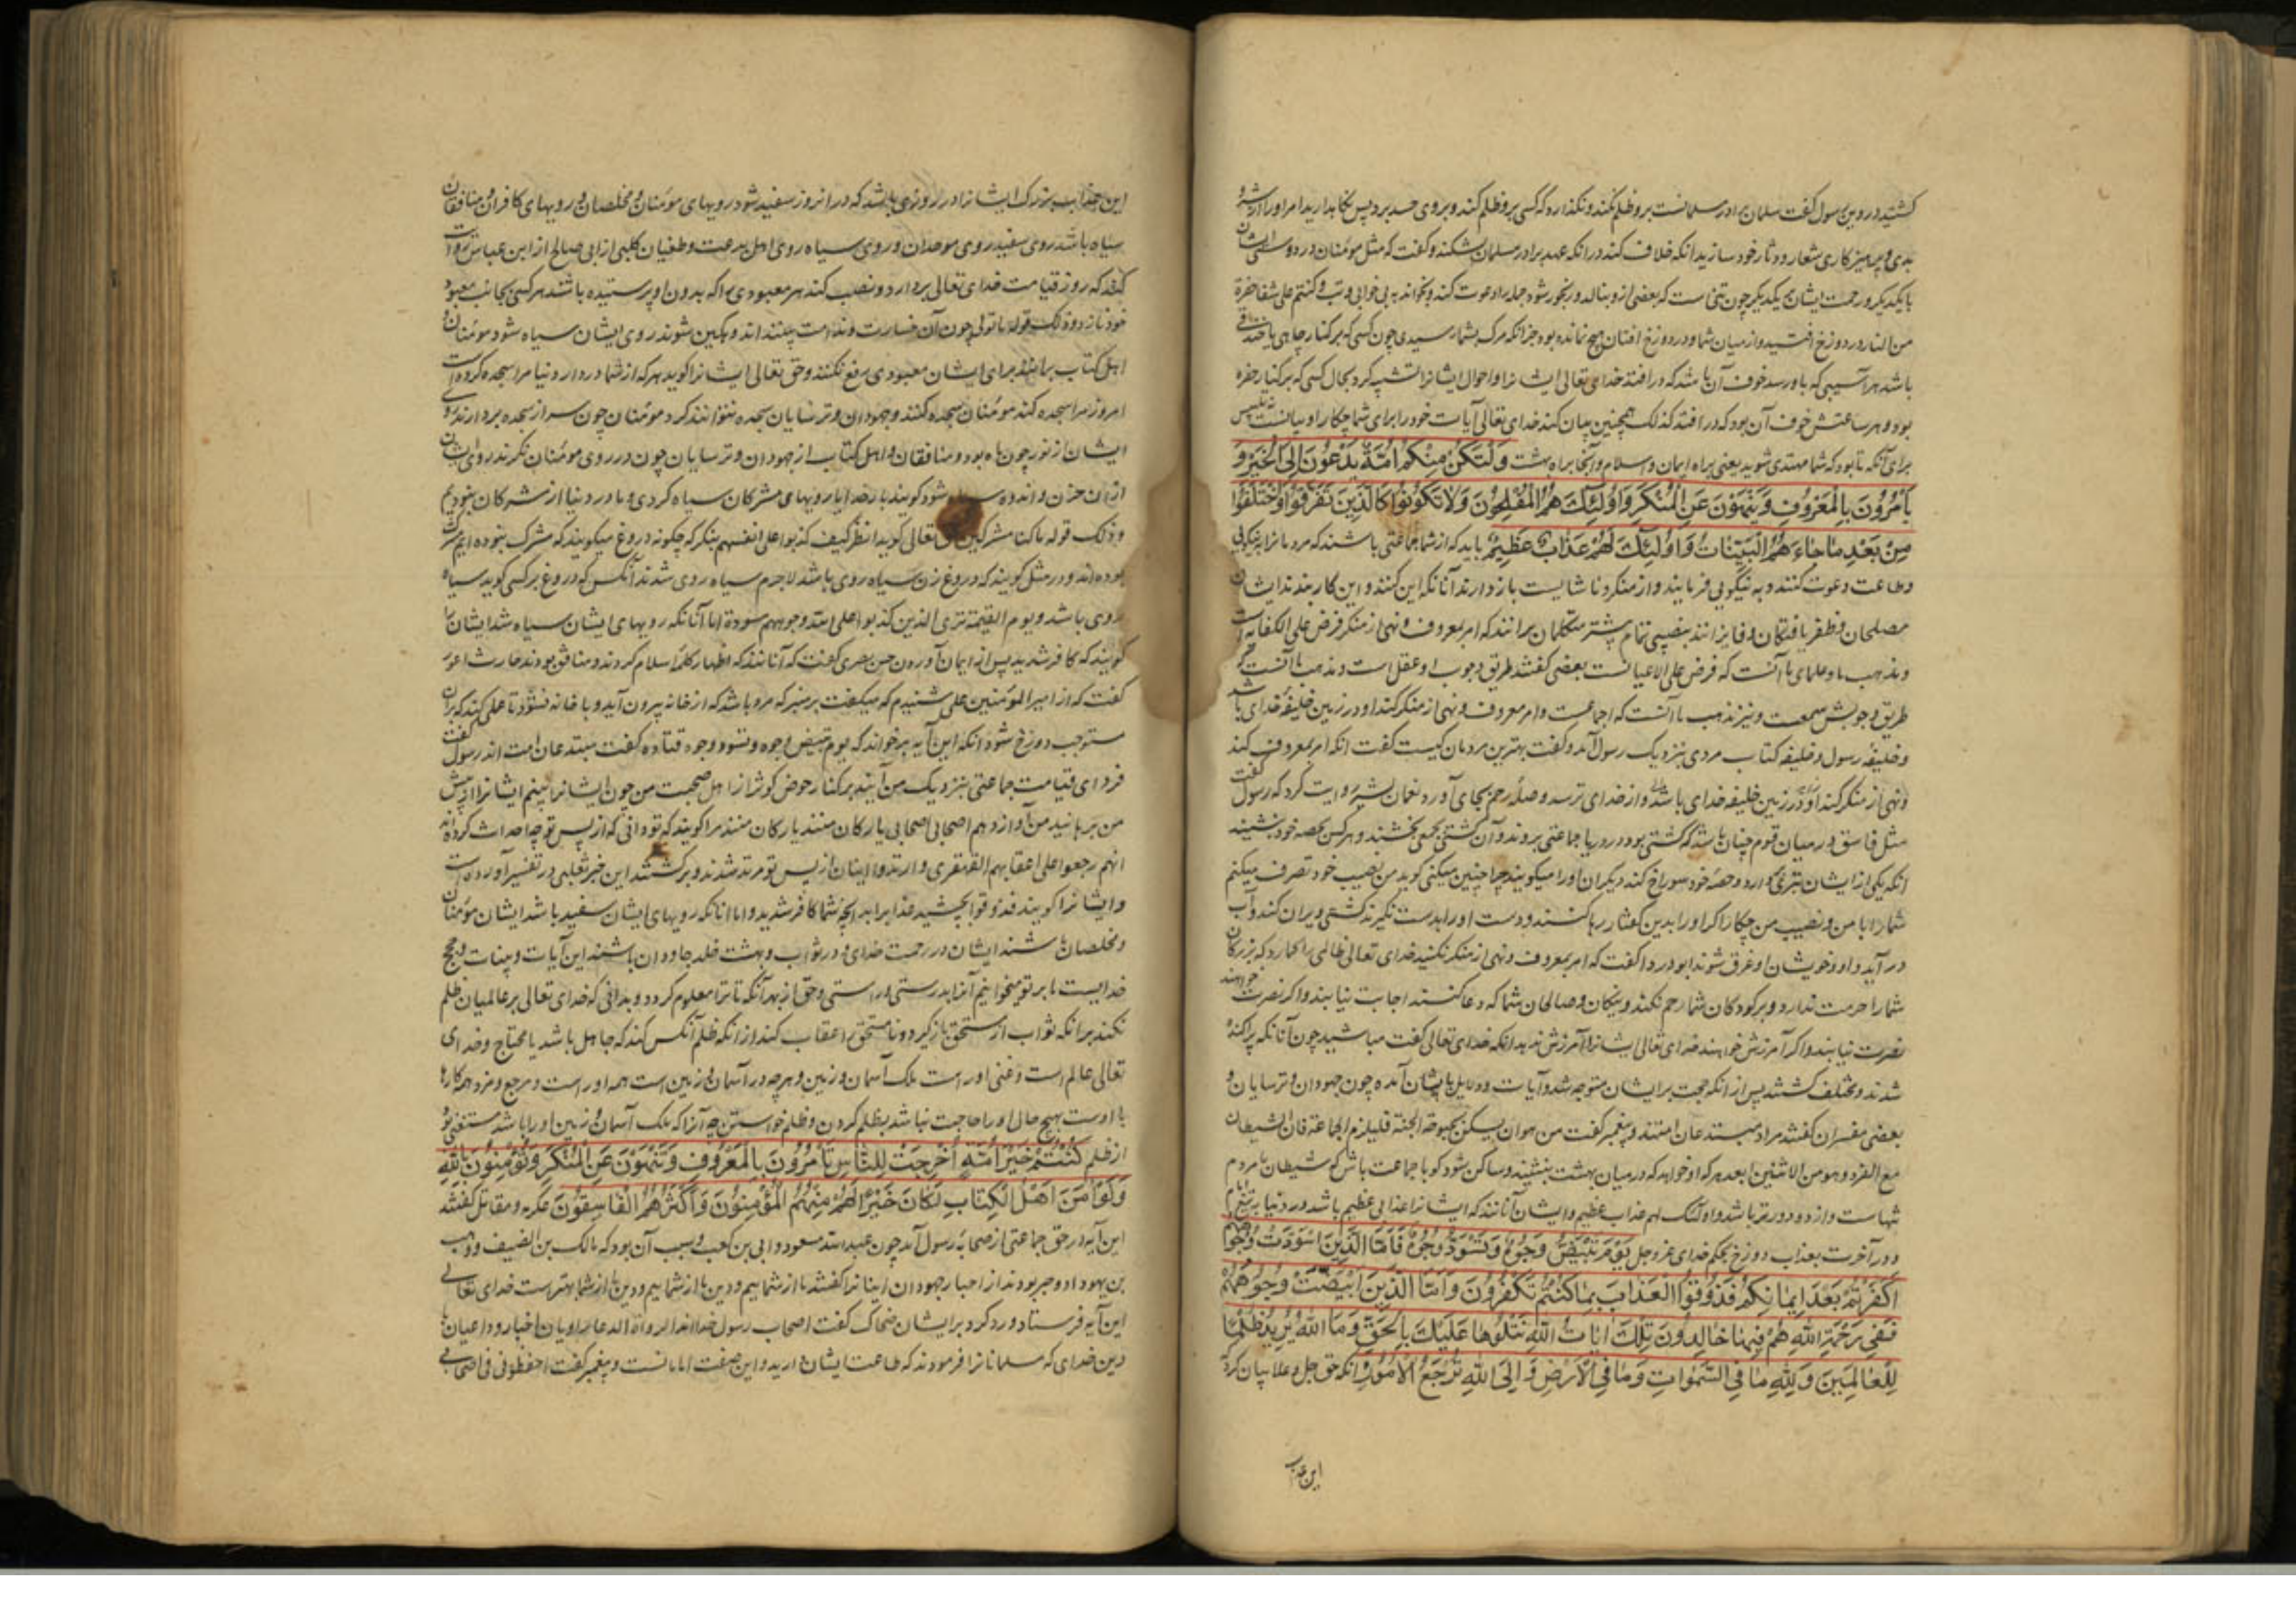 کشتید در دین رسول گفت مسلمان برادر مسلمانست برو ظلم نکند و نگذارد که کسی برو ظلم کند و بروی حسد برد پس نگاه دارید امر او را
بدی و پرهیزکاری شعار و دثار خود سازید انکه خلاف کند در انکه عهد برادر مسلمان بشکند و گفت که مثل مومنان در دوستی ایشان
با یکدیگر و رحمت ایشان بر یکدیگر چون تنی است که بعضی ازو بنالد و رنجور شود جمله را دعوت کند و بخواند به بی خوابی و تب و کنتم علی شفا حفرة
من النار و در دوزخ افتید و از میان شما و در دوزخ افتان هیچ نمانده بود جز انکه مرک بشما رسیدی چون کسی که بر کنار چاهی یا خندقی
باشد هر آسیبی که باو رسد خوف آن باشد که در افتد خدای تعالی ایشانرا و احوال ایشانرا تشبیه کرد بحال کسی که بر کنار حفره
بود و هر ساعتش خوف آن بود که در افتد کذلک همچنین بیان کند خدای تعالی آیات خود را برای شما
برای آنکه تا بود که شما مهتدی شوید یعنی براه ایمان و اسلام و آنجا براه بهشت وَلْتَكُنْ مِنْكُمْ اُمَّةٌ يَدْعُونَ اِلَى الْخَيْرِ وَ
يَأْمُرُونَ بِالْمَعْرُوفِ وَيَنْهَوْنَ عَنِ الْمُنْكَرِ وَاُولٰئِكَ هُمُ الْمُفْلِحُونَ وَلَا تَكُونُوا كَالَّذِينَ تَفَرَّقُوا وَاخْتَلَفُوا
مِنْ بَعْدِ مَا جَاءَهُمُ الْبَيِّنَاتُ وَاُولٰئِكَ لَهُمْ عَذَابٌ عَظِيمٌ باید که از شما جماعتی باشند که مردمانرا به نیکویی
و طاعت دعوت کنند و به نیکویی فرمایند و از منکر و ناشایست باز دارند آنانکه این کنند و این کار بندند ایشان
مصلحان و ظفر یافتگان و فایزانند بنصیبی تمام بیشتر متکلمان برانند که امر بمعروف و نهی از منکر فرض علی الکفایه است
و مذهب ما و علمای ما آنست که فرض علی الاعیانست بعضی گفتند طریق وجوب او عقل است و مذهب ما آنست که
طریق وجوبش سمعست و نیز مذهب ما آنست که اجماعست و امر معروف و نهی از منکر کند او در زمین خلیفه خدای باشد
و خلیفه رسول و خلیفه کتاب مردی بنزدیک رسول آمد و گفت بهترین مردمان کیست گفت انکه امر بمعروف کند
و نهی از منکر کند او در زمین خلیفه خدای باشد و از خدای ترسد و صله رحم بجای آورد نعمان بشیر روایت کرد که رسول گفت
مثل فاسق در میان قوم چنان باشد که کشتی بود در دریا جماعتی بروند و آن کشتی بخشند و هر کس بحصه خود بنشیند
انکه یکی از ایشان تبری بردارد و حصه خود سوراخ کند دیگران او را میگویند چرا چنین میکنی گوید من بنصیب خود تصرف میکنم
شما را با من و نصیب من چکار اگر او را بدین گفتار رها کنند و دست او را بدست نگیرند کشتی ویران کند و آب
در آید و او و خویشان او غرق شوند ابو دردا گفت که امر بمعروف و نهی از منکر نکنید خدای تعالی ظالمی را بگمارد که بزرگان
شما را حرمت ندارد و بر کودکان شما رحم نکند و نیکان و صالحان شما که دعا کنند اجابت نیابند و اگر نصرت خواهند
نصرت نیابند و اگر آمرزش خواهند خدای تعالی ایشانرا آمرزش ندهد انکه خدای تعالی گفت مباشید چون آنانکه پراکنده
شدند و مختلف گشتند پس از انکه حجت بر ایشان متوجه شد و آیات و دلایل بایشان آمده چون جهودان و ترسایان و
بعضی مفسران گفتند مراد مبتدعان امتند و پیغمبر گفت من هوان یسکن بحبوحة الجنة فلیلزم الجماعة فان الشیطان
مع الفرد و هو من الاثنین ابعد هر که او خواهد که در میان بهشت بنشیند و ساکن شود کو با جماعت باش که شیطان با مردم
تنهاست و از دو دورتر باشد و اولئک لهم عذاب عظیم و ایشان آنانند که ایشانرا عذابی عظیم باشد در دنیا
و در آخرت بعذاب دوزخ بحکم خدای عز و جل يَوْمَ تَبْيَضُّ وُجُوهٌ وَتَسْوَدُّ وُجُوهٌ فَاَمَّا الَّذِينَ اسْوَدَّتْ وُجُوهُهُمْ
اَكَفَرْتُمْ بَعْدَ اِيمَانِكُمْ فَذُوقُوا الْعَذَابَ بِمَا كُنْتُمْ تَكْفُرُونَ وَاَمَّا الَّذِينَ ابْيَضَّتْ وُجُوهُهُمْ
فَفِي رَحْمَةِ اللّٰهِ هُمْ فِيهَا خَالِدُونَ تِلْكَ اٰيَاتُ اللّٰهِ نَتْلُوهَا عَلَيْكَ بِالْحَقِّ وَمَا اللّٰهُ يُرِيدُ ظُلْمًا
لِلْعَالَمِينَ وَلِلّٰهِ مَا فِي السَّمٰوَاتِ وَمَا فِي الْاَرْضِ وَاِلَى اللّٰهِ تُرْجَعُ الْاُمُورُ انکه حق جل و علا بیان کرد
این عذاب
این عذاب بزرگ ایشانرا در روزی باشد که در انروز سفید شود رویهای مومنان و مخلصان و رویهای کافران و منافقان
سیاه باشد روی سفید روی موحدان و روی سیاه روی اهل بدعت و طغیان کلبی از ابی صالح از ابن عباس روایت
کند که روز قیامت خدای تعالی بردارد و نصب کند هر معبودی را که بدون او پرستیده باشند هر کسی بجانب معبود
خود تازد و ذلک قوله ما تولی چون آن خسارت و ندامت ببینند اندوهگین شوند روی ایشان سیاه شود مومنان و
اهل کتاب بمانند برای ایشان معبودی رفع نکنند و حق تعالی ایشانرا گوید هر که از شما در دار دنیا مرا سجده کرده است
امروز مرا سجده کند مومنان سجده کنند و جهودان و ترسایان سجده نتوانند کرد مومنان چون سر از سجده بردارند روی
ایشان از نور چون ماه بود و منافقان و اهل کتاب از جهودان و ترسایان چون در روی مومنان نگرند روی ایشان
از ان حزن و اندوه سیاه شود گویند بار خدایا رویهای مشرکان سیاه کردی و ما در دنیا از مشرکان نبودیم
و ذلک قوله ما کنا مشرکین حق تعالی گوید انظر کیف کذبوا علی انفسهم بنگر که چگونه دروغ میگویند که مشرک نبوده ایم مشرک
بوده اند و در مثل گویند که دروغ زن سیاه روی باشد لاجرم سیاه روی شدند آنکس که دروغ بر کسی گوید سیاه
روی باشد و یوم القیمة تری الذین کذبوا علی الله وجوههم مسودة اما آنانکه رویهای ایشان سیاه شد ایشان را
گویند که کافر شدید پس از ایمان آوردن حسن بصری گفت که آنانند که اظهار کلمه اسلام کردند و منافق بودند حارث اعور
گفت که از امیر المومنین علی شنیدم که میگفت بر منبر که مرد باشد که از خانه بیرون آید و با خانه نشود تا عملی کند که بران
مستوجب دوزخ شود انکه این آیه برخواند که یوم تبیض وجوه و تسود وجوه قتاده گفت مبتدعان امت اند رسول گفت
فردای قیامت جماعتی بنزدیک من آیند بر کنار حوض کوثر از اهل صحبت من چون ایشانرا ببینم ایشانرا از پیش
من بربایند من آواز دهم اصحابی اصحابی یارکان منند یارکان منند مرا گویند که تو دانی که از پس تو چه احداث کرده اند
انهم رجعوا علی اعقابهم القهقری و ارتدوا اینان از پس تو مرتد شدند و برگشتند این خبر ثعلبی در تفسیر آورده است
و ایشانرا گویند فذوقوا بچشید عذاب را بدانچه شما کافر شدید و اما آنانکه رویهای ایشان سفید باشد ایشان مومنان
و مخلصان باشند ایشان در رحمت خدای و در ثواب و بهشت خلد جاودان باشند این آیات و بینات و حجج
خدایست ما بر تو میخوانیم آنرا بدرستی و راستی و حق از بهر آنکه تا ترا معلوم گردد و بدانی که خدای تعالی بر عالمیان ظلم
نکند برانکه ثواب از مستحق باز گیرد و نامستحق را عقاب کند از انکه ظلم آنکس کند که جاهل باشد یا محتاج و خدای
تعالی عالم است و غنی اوراست ملک آسمان و زمین و هر چه در آسمان و زمین است همه اوراست و مرجع و مرد همه کارها
با اوست بهیچ حال او را حاجت نباشد بظلم کردن و ظلم خواستن چه آنرا که ملک آسمان و زمین او را باشد مستغنی بود
از ظلم كُنْتُمْ خَيْرَ اُمَّةٍ اُخْرِجَتْ لِلنَّاسِ تَأْمُرُونَ بِالْمَعْرُوفِ وَتَنْهَوْنَ عَنِ الْمُنْكَرِ وَتُؤْمِنُونَ بِاللّٰهِ
وَلَوْ اٰمَنَ اَهْلُ الْكِتَابِ لَكَانَ خَيْرًا لَهُمْ مِنْهُمُ الْمُؤْمِنُونَ وَاَكْثَرُهُمُ الْفَاسِقُونَ عکرمه و مقاتل گفتند
این آیه در حق جماعتی از صحابه رسول آمد چون عبد الله مسعود و ابی بن کعب و سبب آن بود که مالک بن الضیف و وهب
بن یهودا دو حبر بودند از احبار جهودان اینانرا گفتند ما از شما بهیم و دین ما از شما بهتر است خدای تعالی
این آیه فرستاد و رد کرد بر ایشان ضحاک گفت اصحاب رسول خدااند الرواة الدعاة راویان اخبار و داعیان با
دین خدای که مسلمانانرا فرمودند که طاعت ایشان دارید و این صفت امامانست و پیغمبر گفت احفظونی فی اصحابی